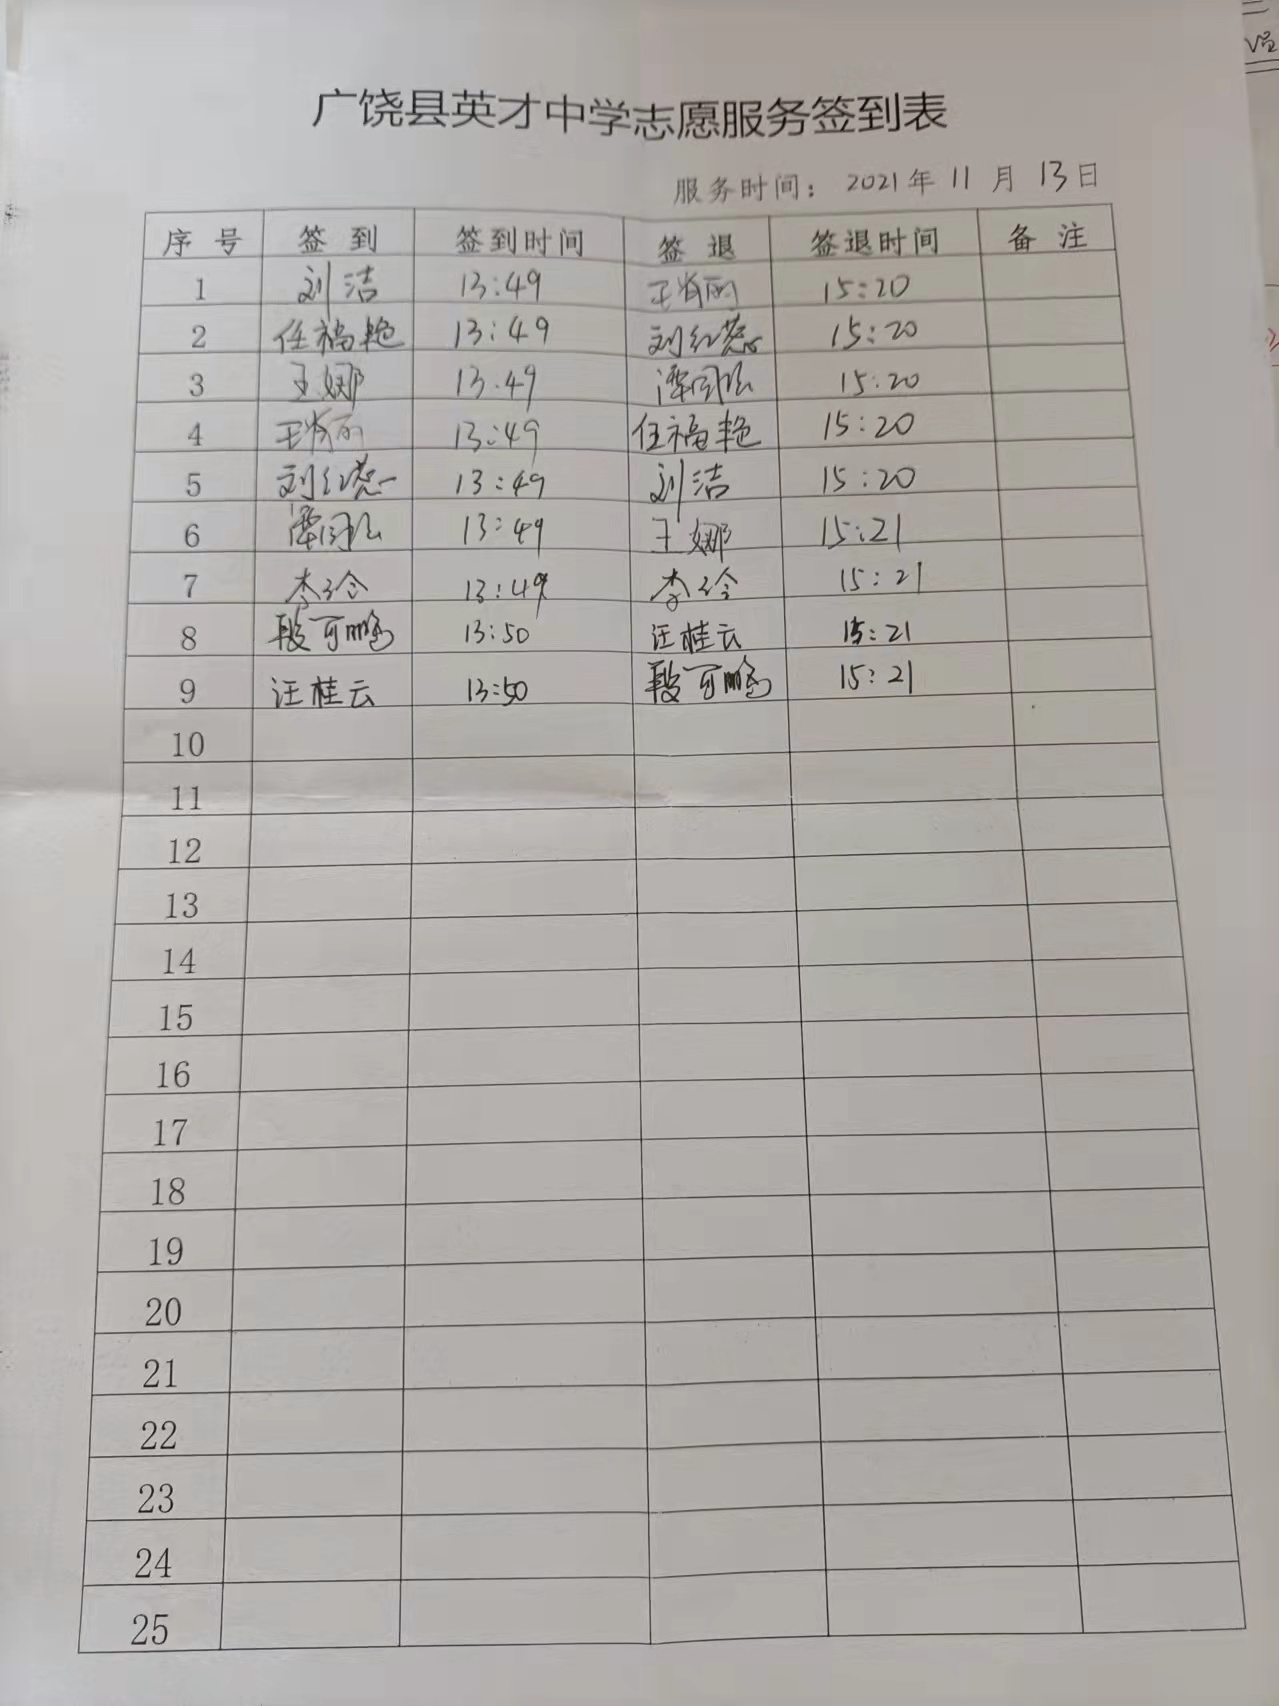 广饶县英才中学志愿服务签到表
服务时间：2021年11月13日
序号 签到 签到时间 签退 签退时间 备注
1 刘洁 13:49 15:20
2 任福艳 13:49 15:20
3 王娜 13:49 15:20
4 13:49 任福艳 15:20
5 13:49 刘洁 15:20
6 13:49 王娜 15:21
7 李玲 13:49 李玲 15:21
8 段可鹏 13:50 汪桂云 15:21
9 汪桂云 13:50 段可鹏 15:21
10
11
12
13
14
15
16
17
18
19
20
21
22
23
24
25